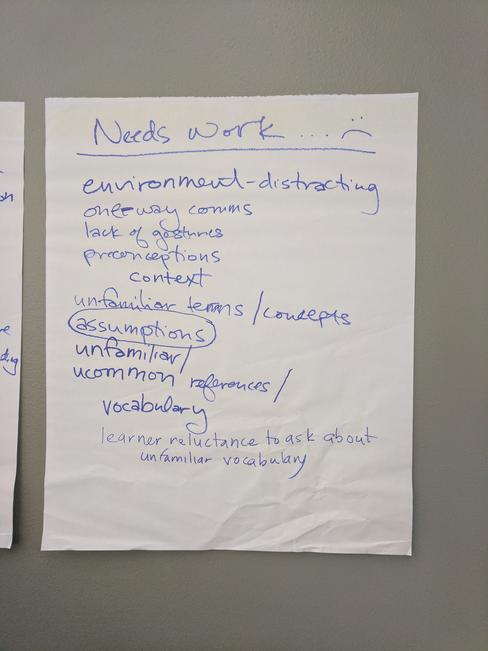 Needs work .... :(
environment-distracting
one-way comms
lack of gestures
preconceptions
context
unfamiliar terms/concepts
assumptions
unfamiliar/
ucommon references/
vocabulary
learner reluctance to ask about
unfamiliar vocabulary